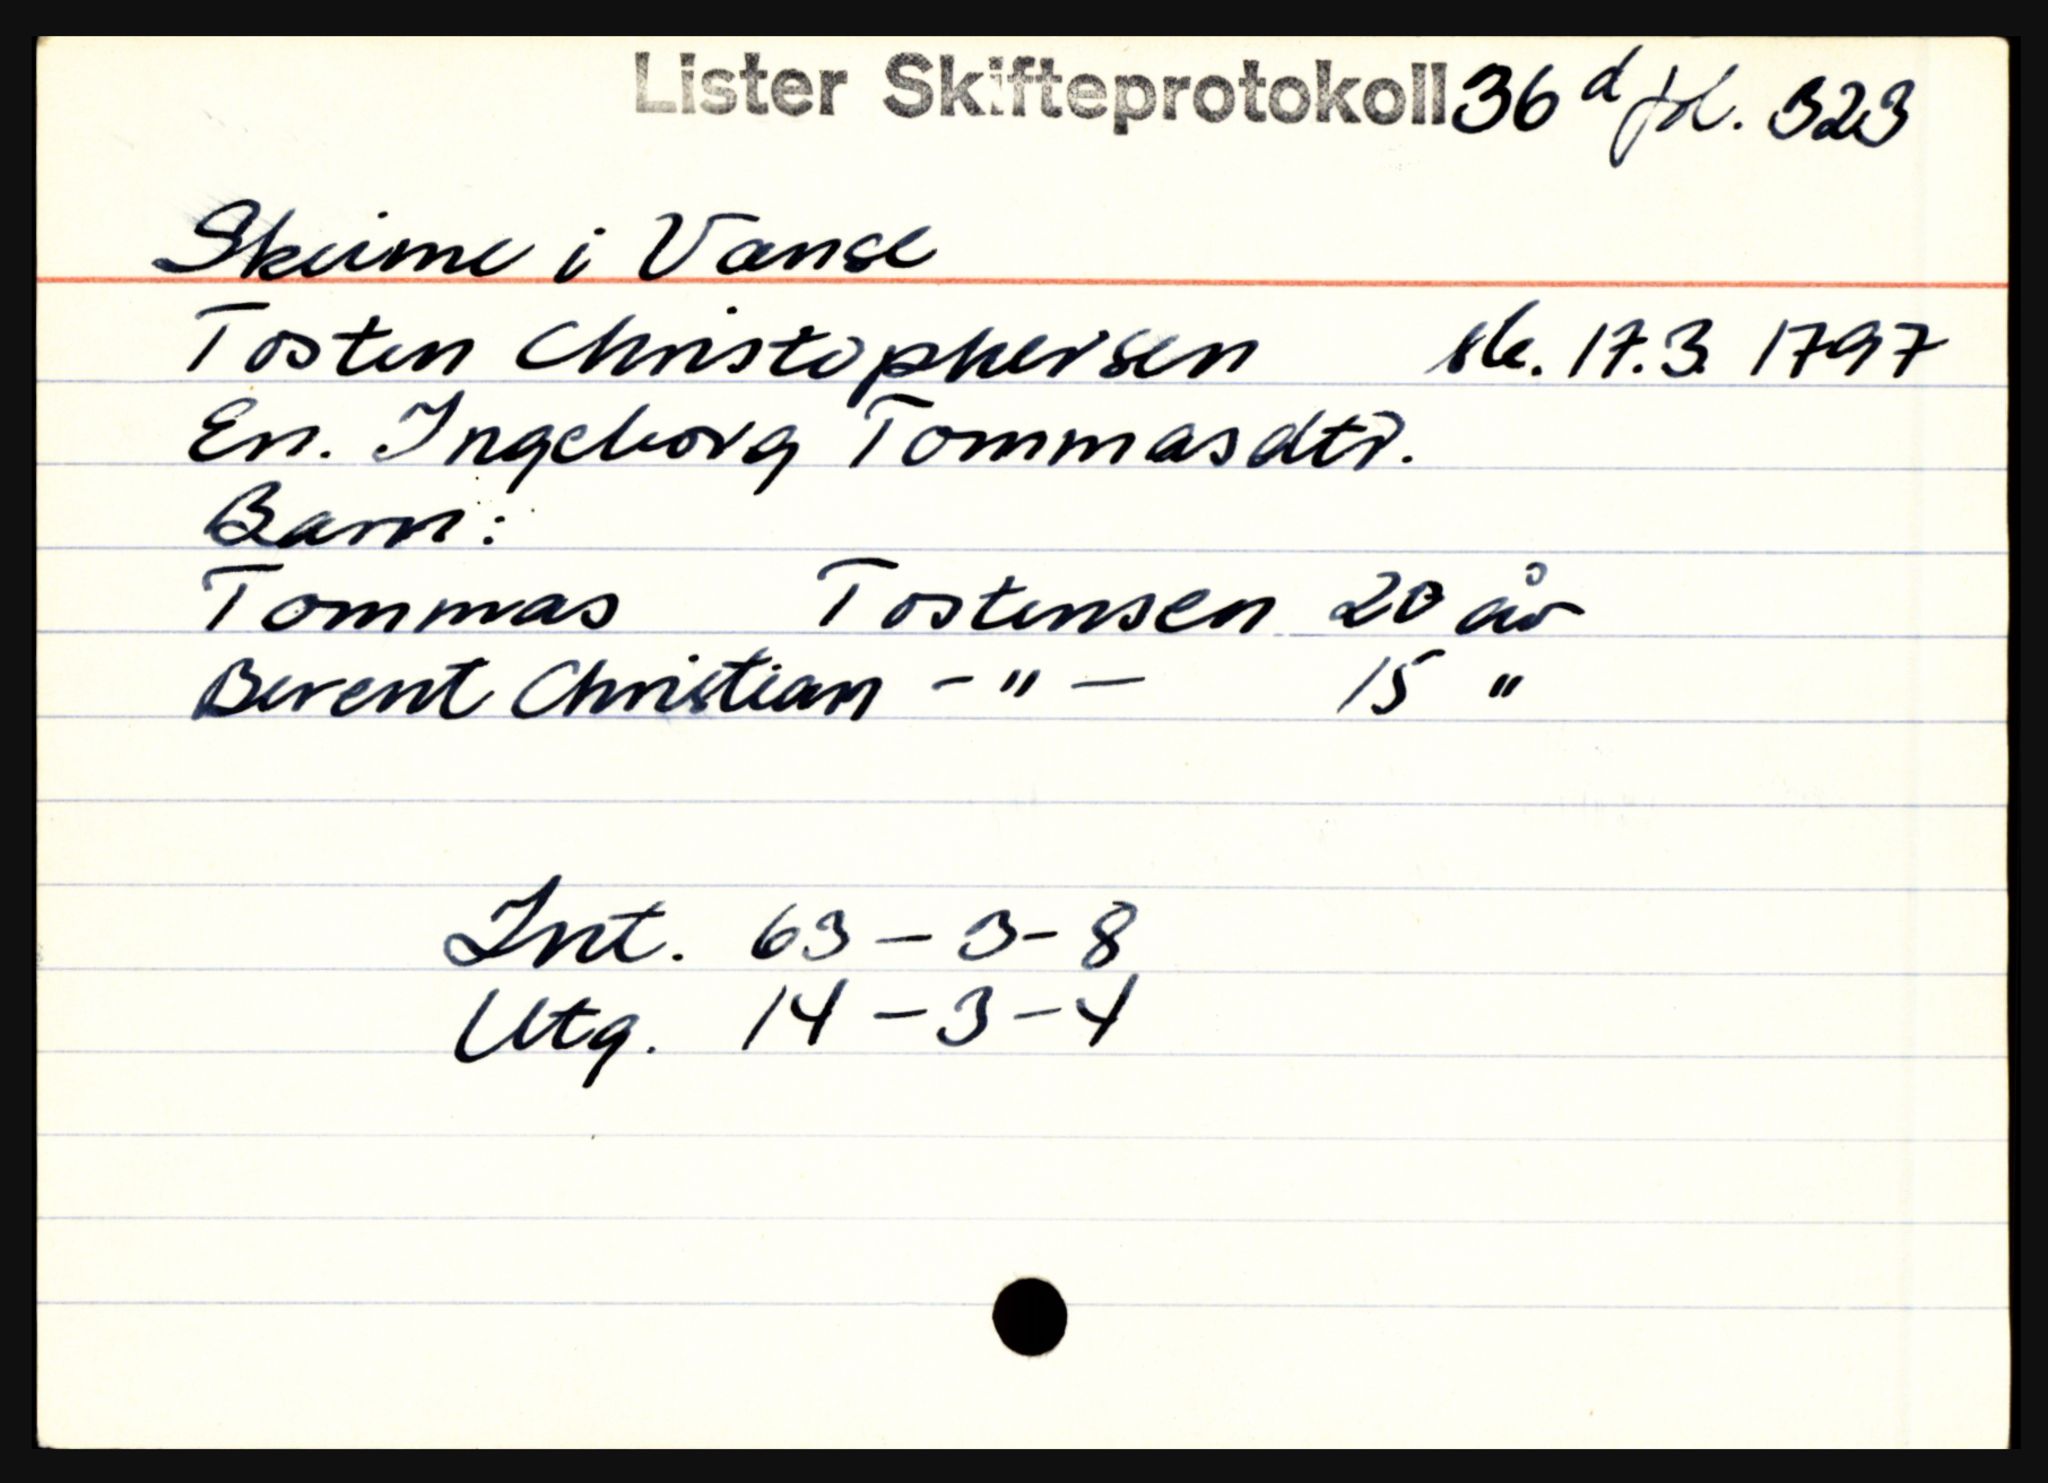 Lister Skifteprotokoll 36 d fol. 323
Skeime i Vanse
Tosten Christophersen sk. 17.3. 1797
En. Ingeborg Tommasdtr.
Barn:
Tommas Tostensen 20 år
Berent Christian - " - 15 "
Int. 63 - 3 - 8
Utg. 14 - 3 - 4